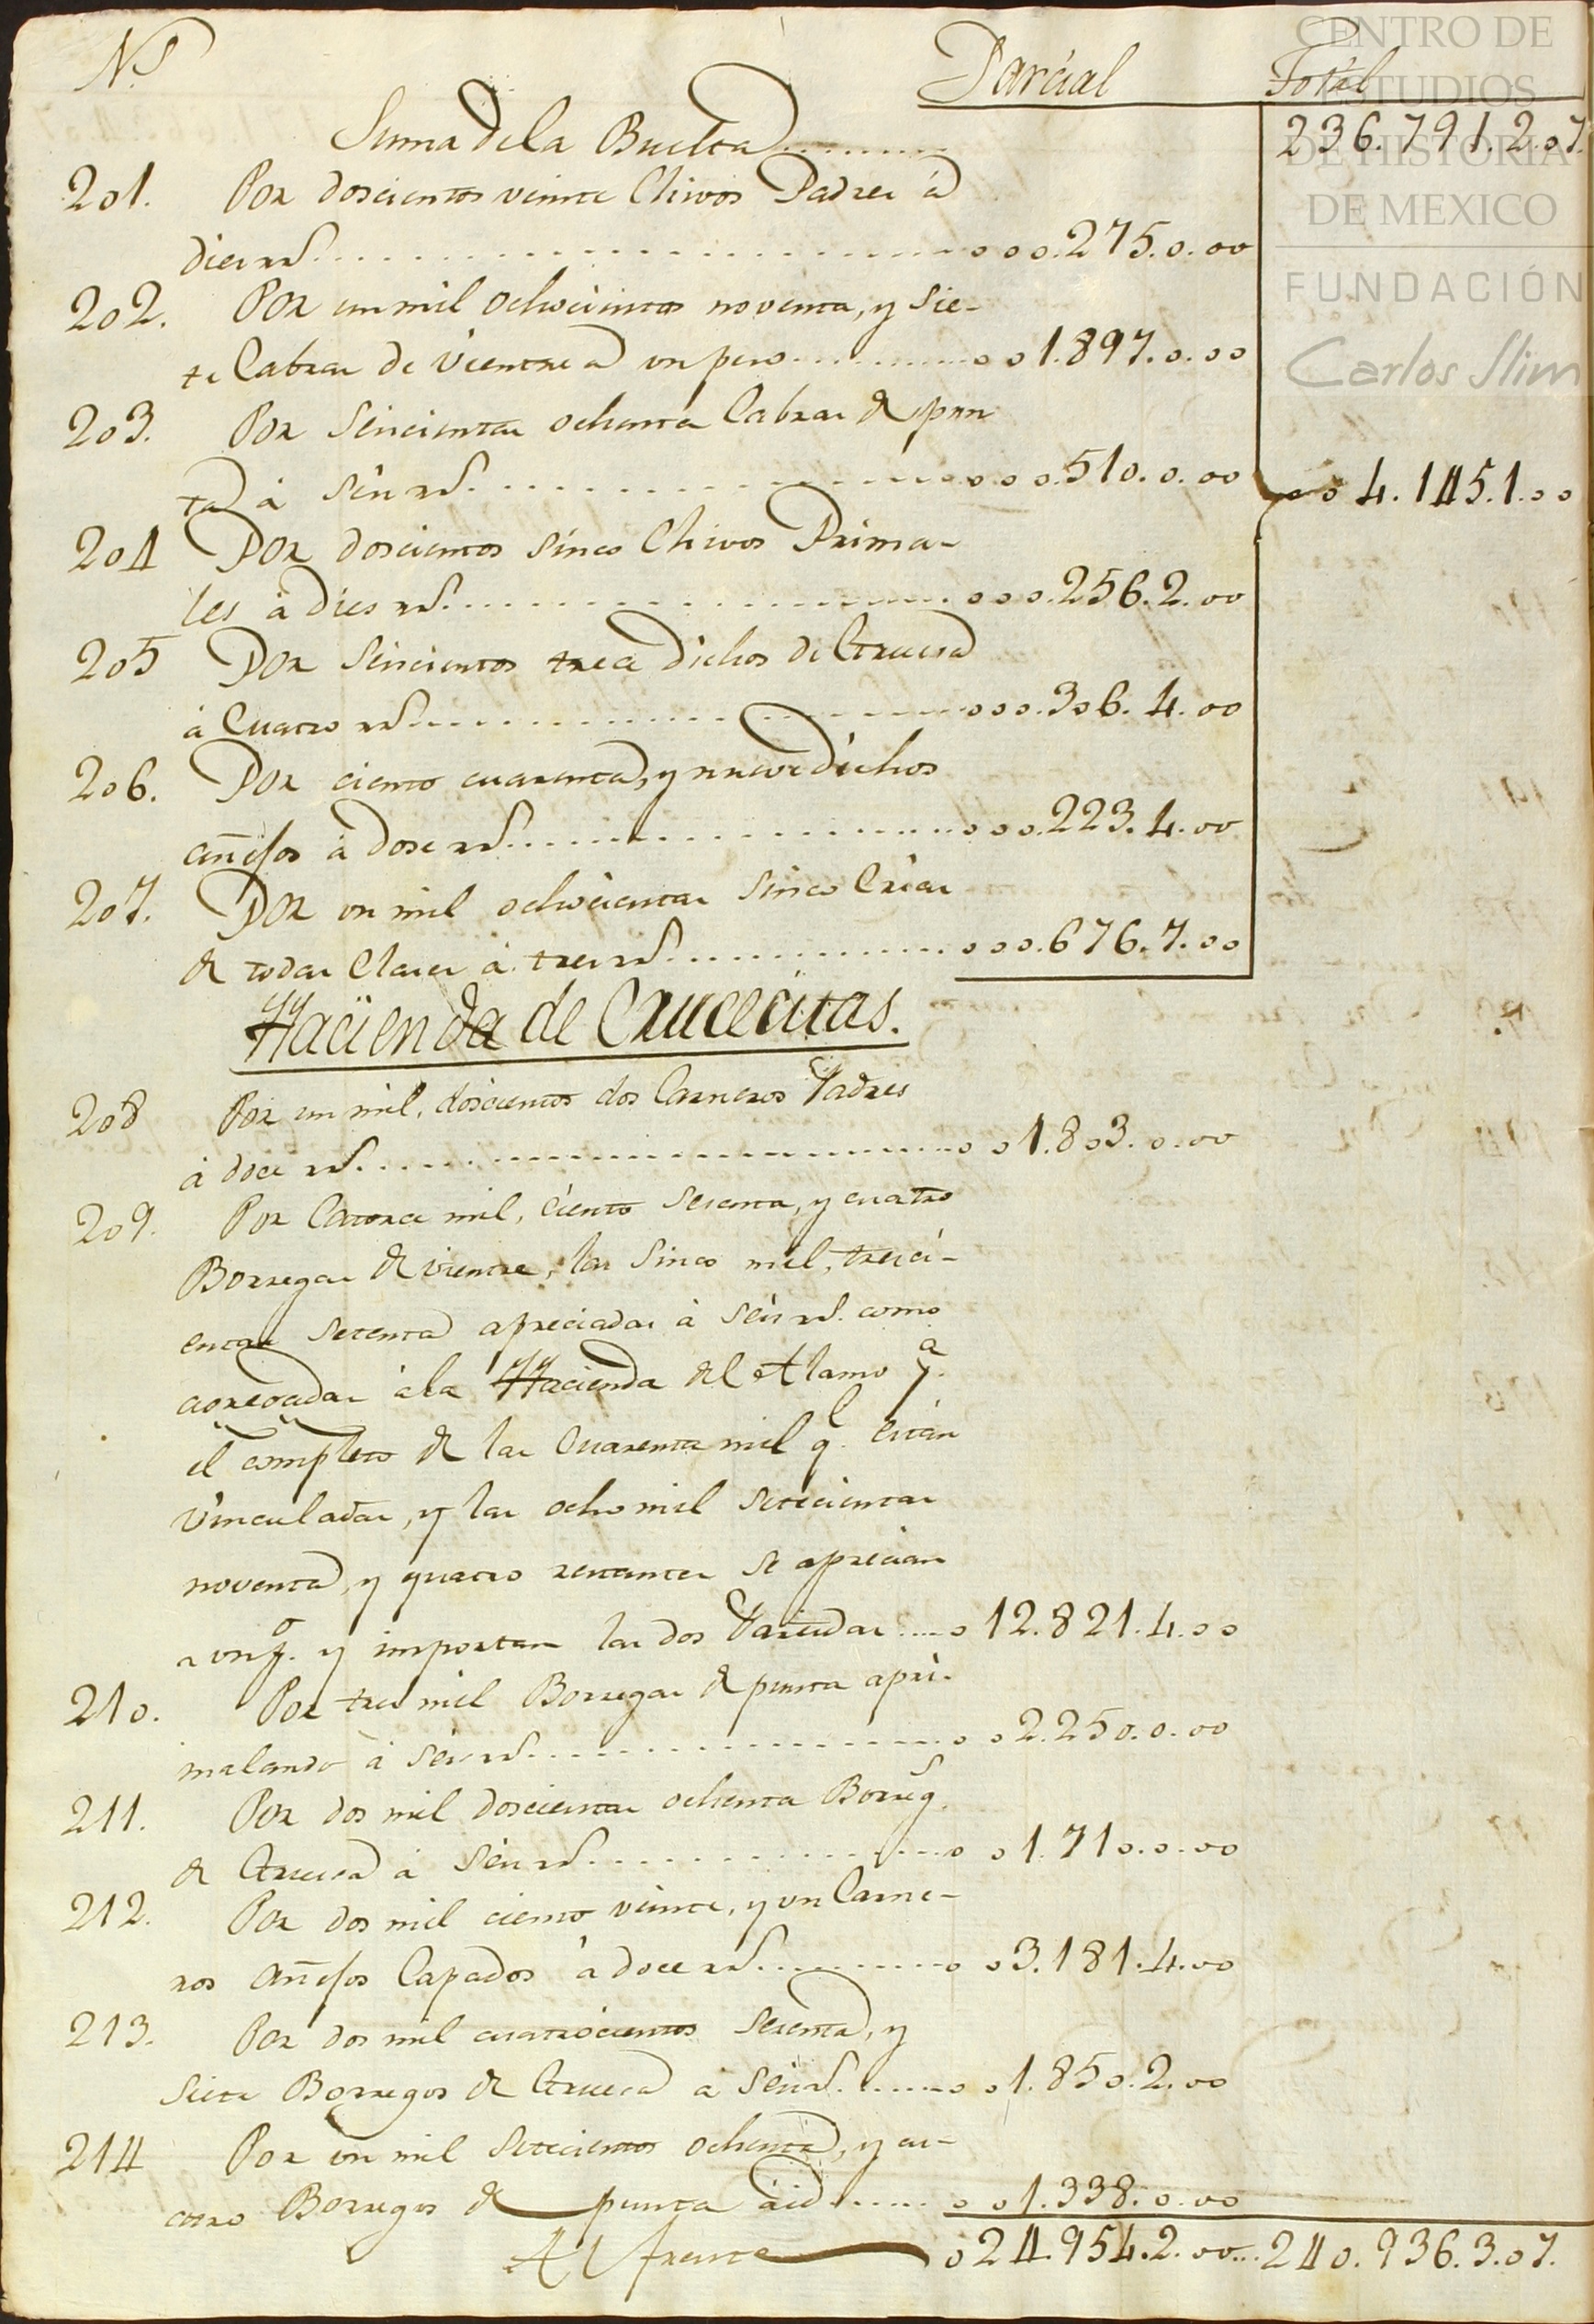 N.s Parcial Total
Suma de la Buelta.......... 236.791.2.07.
201. Por doscientos veinte Chivos Padres á
dies rs. ........ 000.275.0.00
202. Por un mil ochocientas noventa, y sie-
te Cabras de vientre a un peso ........ 001.897.0.00
203. Por seiscientas ochenta Cabras de pun
ta á seis rs. ........ 000.510.0.00 00 4.145.1.00
204 Por doscientos sinco Chivos Prima-
les á dies rs. ........ 000.256.2.00
205 Por seiscientos trece dichos de Cruesa
á Cuatro rs. ........ 000.306.4.00
206. Por ciento cuarenta, y nueve dichos
añejos á dose rs. ........ 000.223.4.00
207. Por un mil ochocientas sinco Crias
de todas Clases á tres rs. ........ 000.676.7.00
Hacienda de Crucecitas.
208 Por un mil, doscientos dos Carneros Padres
á doce rs. ........ 001.803.0.00
209. Por Catorce mil, ciento sesenta, y cuatro
Borregas de vientre, las Sinco mil, tresci-
entas setenta apreciadas á seis rs. como
agregadas á la Hacienda del Alamo p.a
el completo de las Cuarenta mil q.e están
vinculadas, y las ocho mil setecientas
noventa, y quatro restantes se aprecian
a un p.o y importan las dos Partidas .... 0 12.821.4.00
210. Por tres mil Borregas de punta apri-
malando á seis rs. ........ 0 02.250.0.00
211. Por dos mil doscientas ochenta Borreg.s
de Cruesa á seis rs. ........ 0 01.710.0.00
212. Por dos mil ciento veinte, y un Carne-
ros Añejos Capados á doce rs. ........ 0 03.181.4.00
213. Por dos mil cuatrocientos sesenta, y
siete Borregos de Cruesa á seis rs. ........ 0 01.850.2.00
214 Por un mil setecientos ochenta, y cu-
atro Borregos de punta á id ........ 0 01.338.0.00
Al frente 024.954.2.00... 240.936.3.07.
CENTRO DE
ESTUDIOS
DE HISTORIA
DE MEXICO
FUNDACIÓN
Carlos Slim